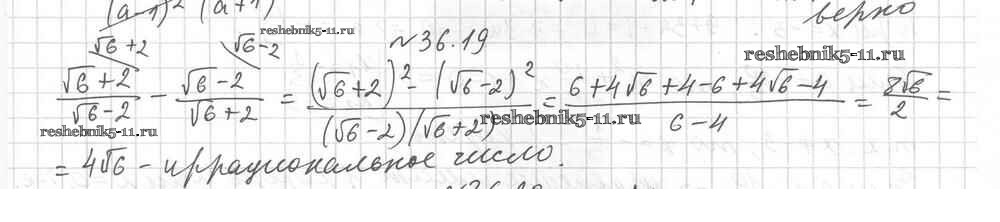 (a-1)² (a+1)
верно
√6+2 √6-2 reshebnik5-11.ru
№36.19
reshebnik5-11.ru
(√6+2)/(√6-2) - (√6-2)/(√6+2) = ((√6+2)² - (√6-2)²)/((√6-2)(√6+2)) = (6+4√6+4-6+4√6-4)/(6-4) = 8√6/2 =
reshebnik5-11.ru reshebnik5-11.ru
= 4√6 - иррациональное число.